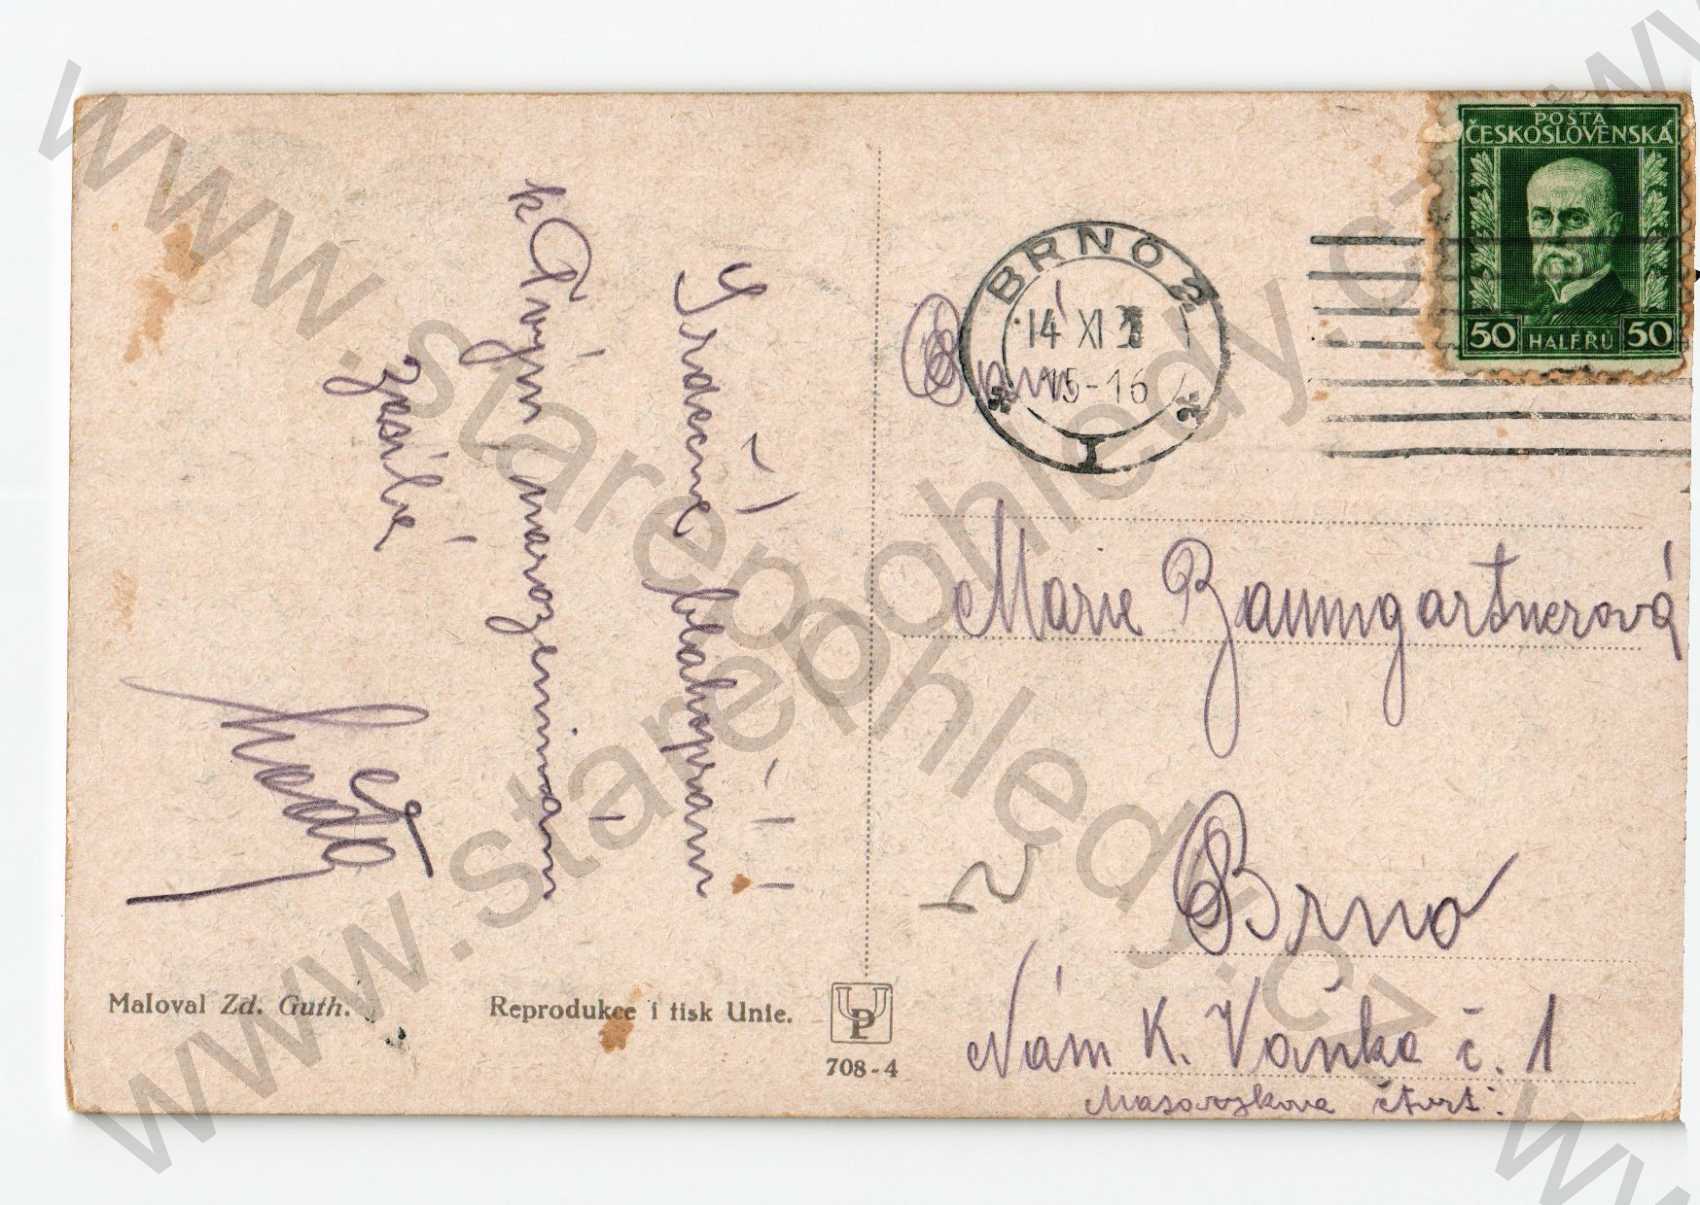 Srdečné blahopřání
k Tvým narozeninám
zasílá
Maloval Zd. Guth.
Reprodukce i tisk Unie.
UP
708-4
POŠTA
ČESKOSLOVENSKÁ
50 HALÉŘŮ 50
BRNO 2
14 XI
15-16
1
Marie Baumgartnerová
Brno
Nám K. Vaňka č. 1
Masarykova čtvrť.
www.starepohledy.cz
www.starepohledy.cz